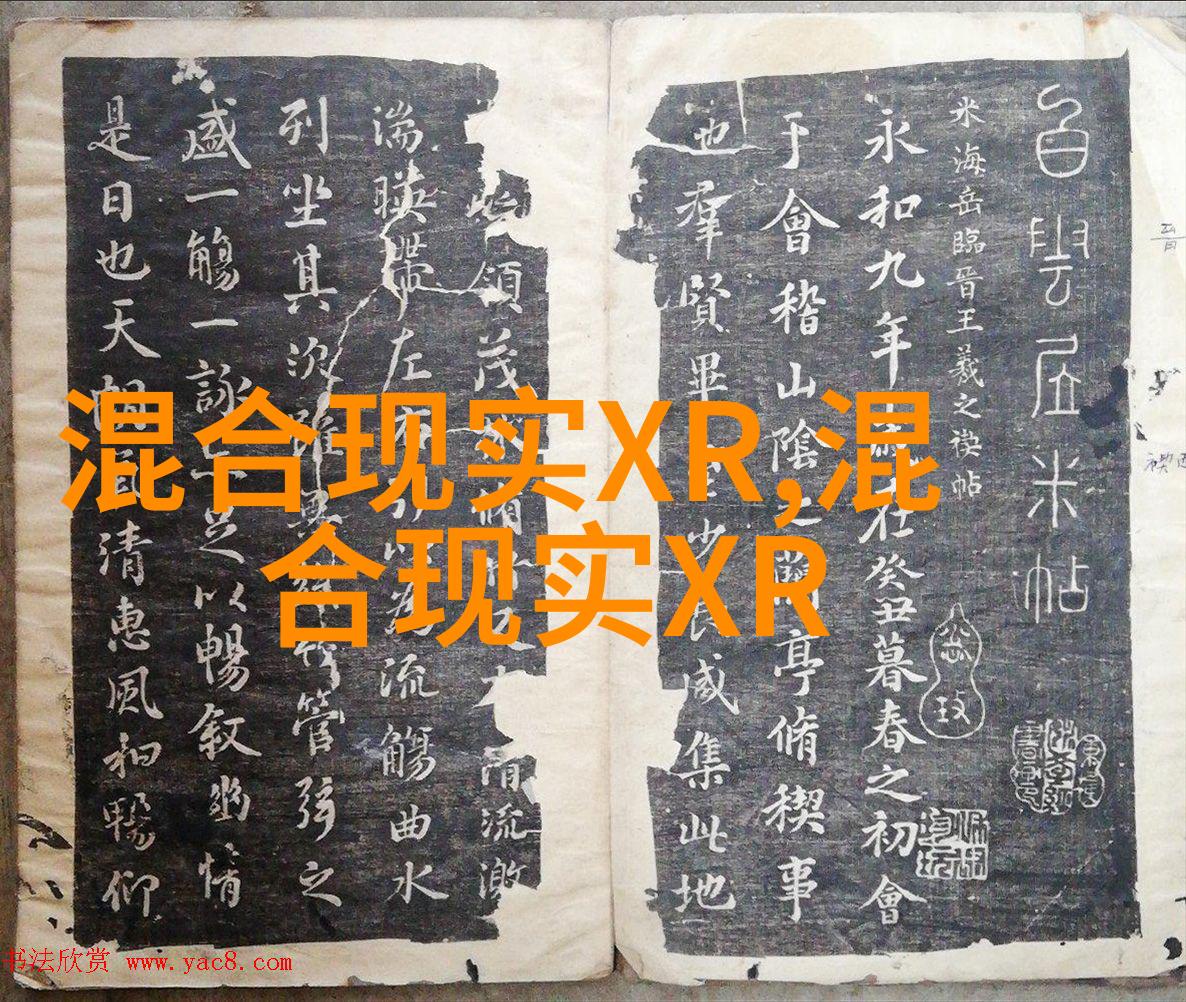 混合现实XR,混
合现实XR
白雲居米帖
米海岳臨晉王羲之禊帖
永和九年在癸丑暮春之初會
于會稽山陰之蘭亭脩稧事
也羣賢畢至少長咸集此地
領茂林脩竹又有清流激
湍暎帶左右引以為流觴曲水
列坐其次雖無絲竹管弦之
盛一觴一詠亦足以暢敘幽情
是日也天朗氣清惠風和暢仰
书法欣赏 www.yac8.com